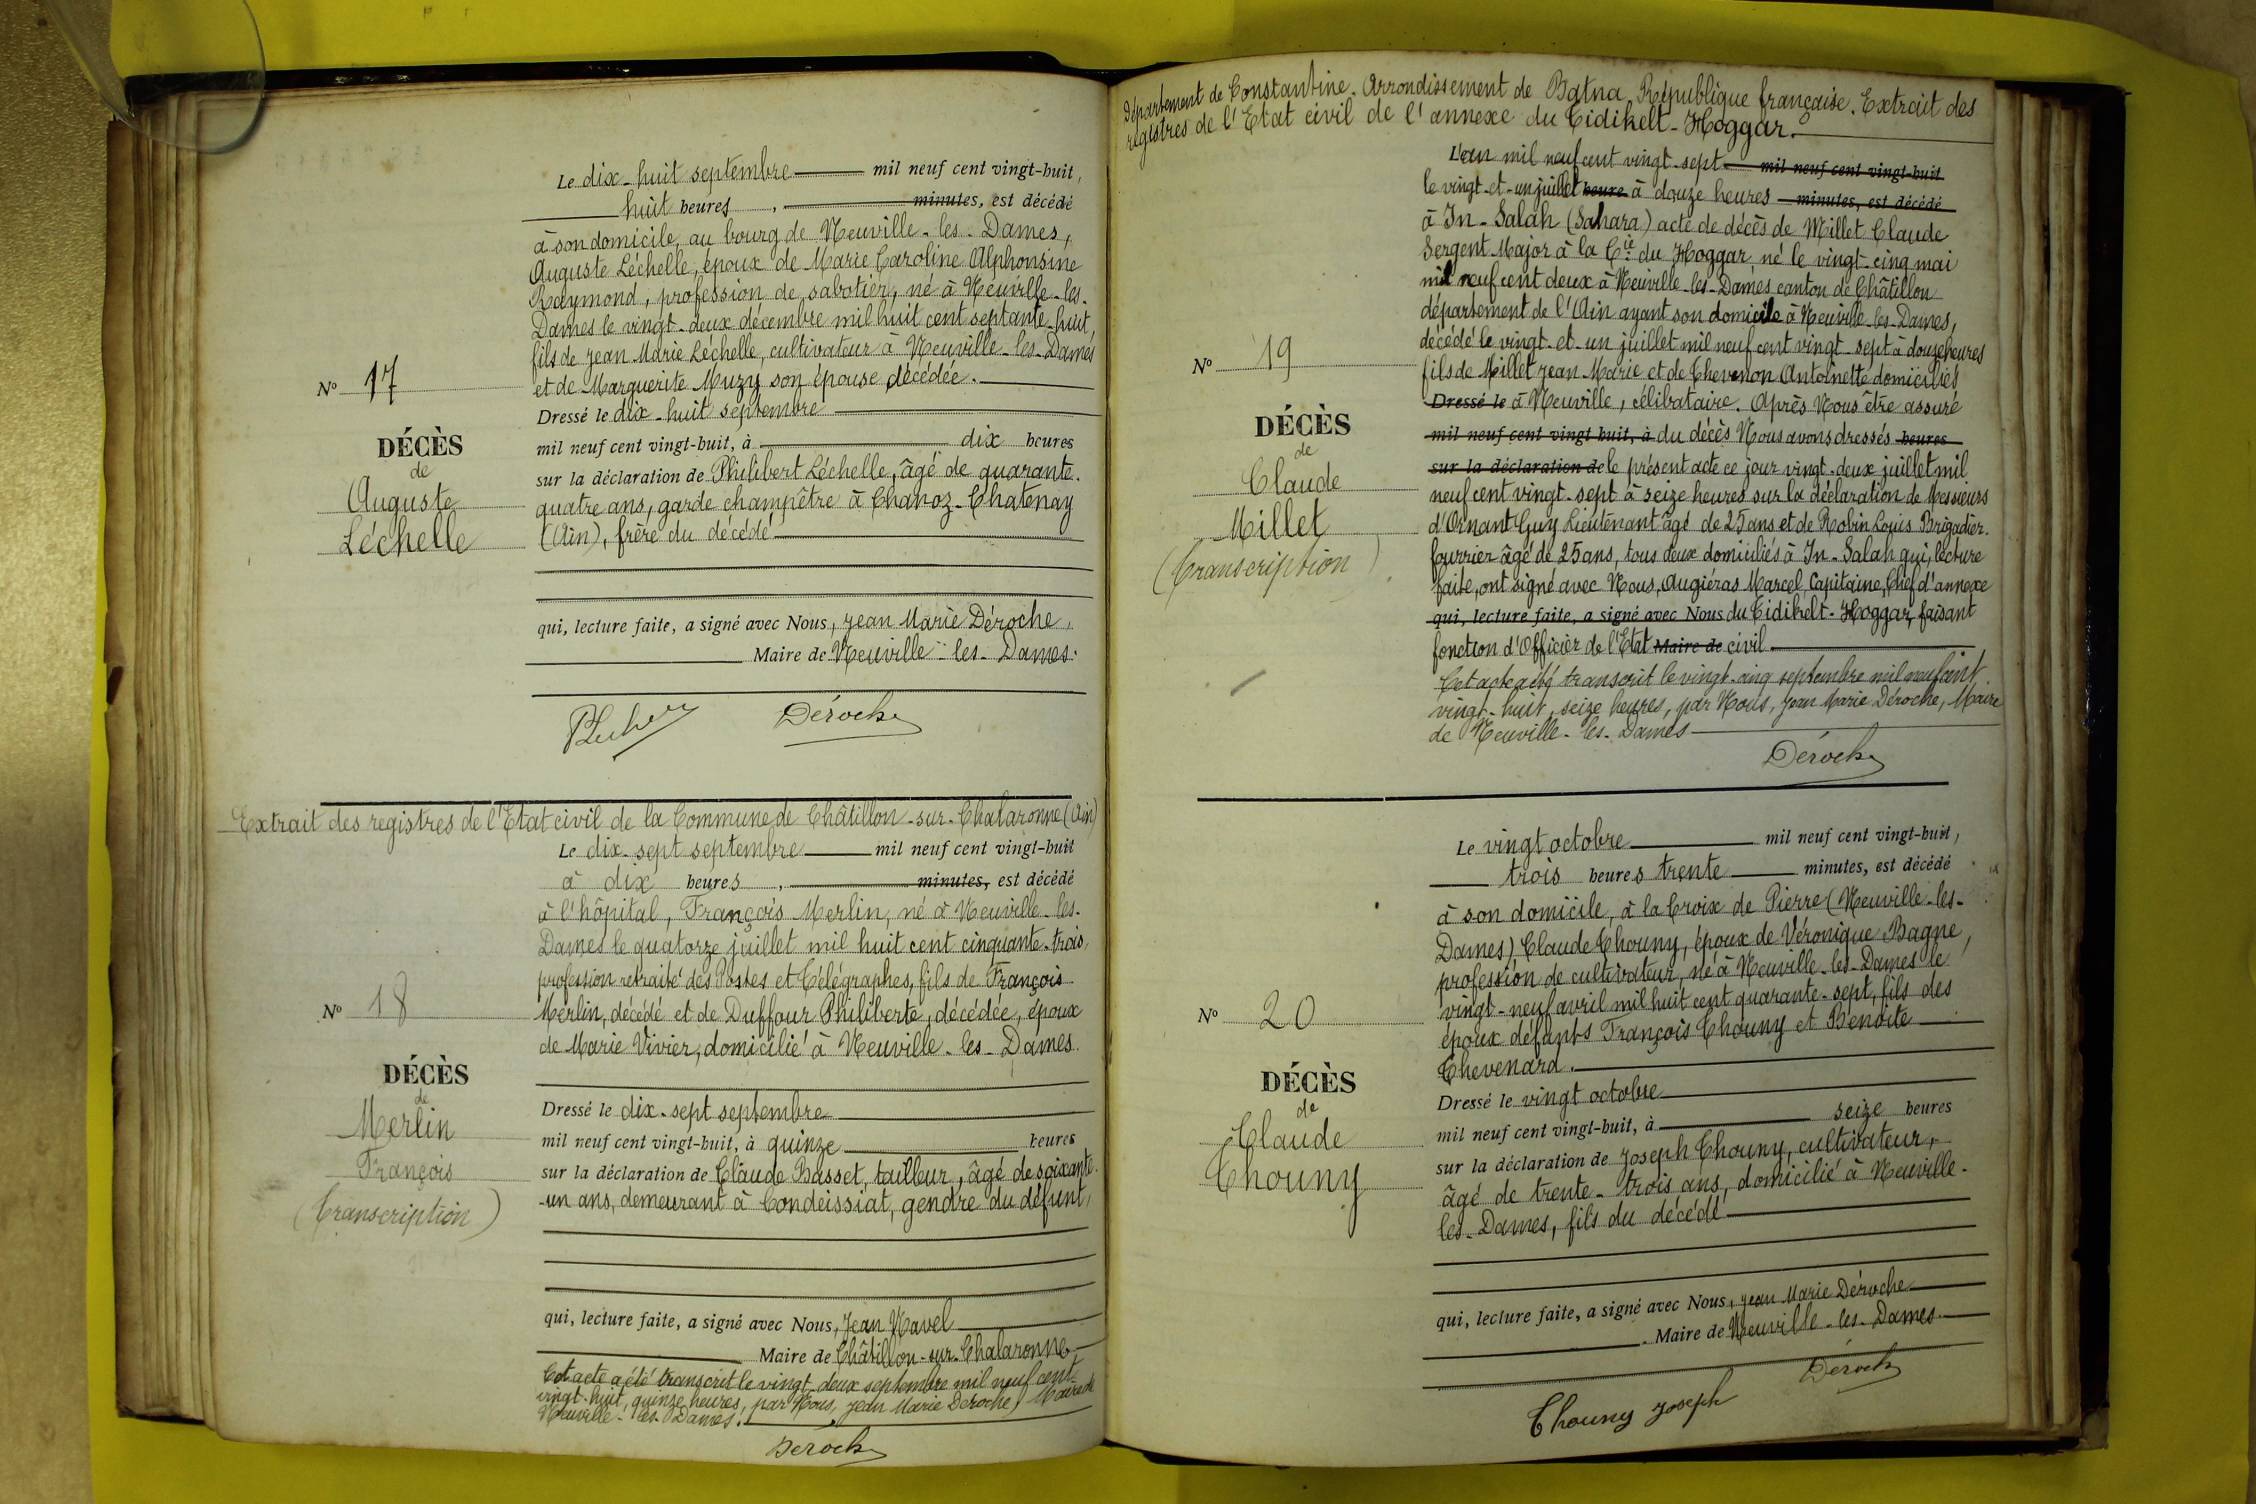 Le dix-huit septembre mil neuf cent vingt-huit,
huit heures, minutes, est décédé
à son domicile, au bourg de Neuville-les-Dames,
Auguste Léchelle, époux de Marie Caroline Alphonsine
Raymond, profession de sabotier, né à Neuville-les-
Dames le vingt-deux décembre mil huit cent septante-huit,
fils de Jean Marie Léchelle, cultivateur à Neuville-les-Dames
et de Marguerite Muzy son épouse décédée.
Nº 17
DÉCÈS
de
Auguste
Léchelle
Dressé le dix-huit septembre
mil neuf cent vingt-huit, à dix heures
sur la déclaration de Philibert Léchelle, âgé de quarante-
quatre ans, garde champêtre à Chanoz-Chatenay
(Ain), frère du décédé
qui, lecture faite, a signé avec Nous, Jean Marie Déroche,
Maire de Neuville-les-Dames.
Déroche
Extrait des registres de l'Etat civil de la Commune de Châtillon-sur-Chalaronne (Ain)
Le dix-sept septembre mil neuf cent vingt-huit
à dix heures, minutes, est décédé
à l'hôpital, François Merlin, né à Neuville-les-
Dames le quatorze juillet mil huit cent cinquante-trois,
profession retraité des Postes et Télégraphes, fils de François
Merlin, décédé et de Duffour Philiberte, décédée, époux
de Marie Vivier, domicilié à Neuville-les-Dames.
Nº 18
DÉCÈS
de
Merlin
François
(Transcription)
Dressé le dix-sept septembre
mil neuf cent vingt-huit, à quinze heures
sur la déclaration de Claude Basset, tailleur, âgé de soixante-
-un ans, demeurant à Condeissiat, gendre du défunt,
qui, lecture faite, a signé avec Nous, Jean Navel
Maire de Châtillon-sur-Chalaronne
Cet acte a été transcrit le vingt-deux septembre mil neuf cent
vingt-huit, quinze heures, par Nous, Jean Marie Déroche, Maire de
Neuville-les-Dames.
Déroche
Département de Constantine. Arrondissement de Batna. République française. Extrait des
registres de l'Etat civil de l'annexe du Tidikelt-Hoggar.
L'an mil neuf cent vingt-sept mil neuf cent vingt-huit
le vingt-et-un juillet heure à douze heures minutes, est décédé
à In-Salah (Sahara) acte de décès de Millet Claude
Sergent Major à la Cie du Hoggar, né le vingt-cinq mai
mil neuf cent deux à Neuville-les-Dames canton de Châtillon
département de l'Ain ayant son domicile à Neuville-les-Dames,
décédé le vingt-et-un juillet mil neuf cent vingt-sept à douze heures
fils de Millet Jean Marie et de Chevenon Antoinette domiciliés
Dressé le à Neuville, célibataire. Après Nous être assuré
mil neuf cent vingt huit, à du décès Nous avons dressés heures
sur la déclaration de le présent acte ce jour vingt-deux juillet mil
neuf cent vingt-sept à seize heures sur la déclaration de Messieurs
d'Ornant Guy Lieutenant âgé de 25 ans et de Robin Louis Brigadier-
fourrier âgé de 25 ans, tous deux domiciliés à In-Salah qui, lecture
faite, ont signé avec Nous, Augiéras Marcel Capitaine, Chef d'annexe
qui, lecture faite, a signé avec Nous du Tidikelt-Hoggar, faisant
fonction d'Officier de l'Etat Maire de civil
Cet acte a été transcrit le vingt-cinq septembre mil neuf cent
vingt-huit, seize heures, par Nous, Jean Marie Déroche, Maire
de Neuville-les-Dames
Déroche
Nº 19
DÉCÈS
de
Claude
Millet
(Transcription)
Le vingt octobre mil neuf cent vingt-huit,
trois heures trente minutes, est décédé
à son domicile, à la Croix de Pierre (Neuville-les-
Dames) Claude Chouny, époux de Véronique Bagne,
profession de cultivateur, né à Neuville-les-Dames le
vingt-neuf avril mil huit cent quarante-sept, fils des
époux défunts François Chouny et Benoite
Chevenard.
Nº 20
DÉCÈS
de
Claude
Chouny
Dressé le vingt octobre
mil neuf cent vingt-huit, à seize heures
sur la déclaration de Joseph Chouny, cultivateur,
âgé de trente-trois ans, domicilié à Neuville-
les-Dames, fils du décédé
qui, lecture faite, a signé avec Nous, Jean Marie Déroche
Maire de Neuville-les-Dames.
Chouny Joseph
Déroche